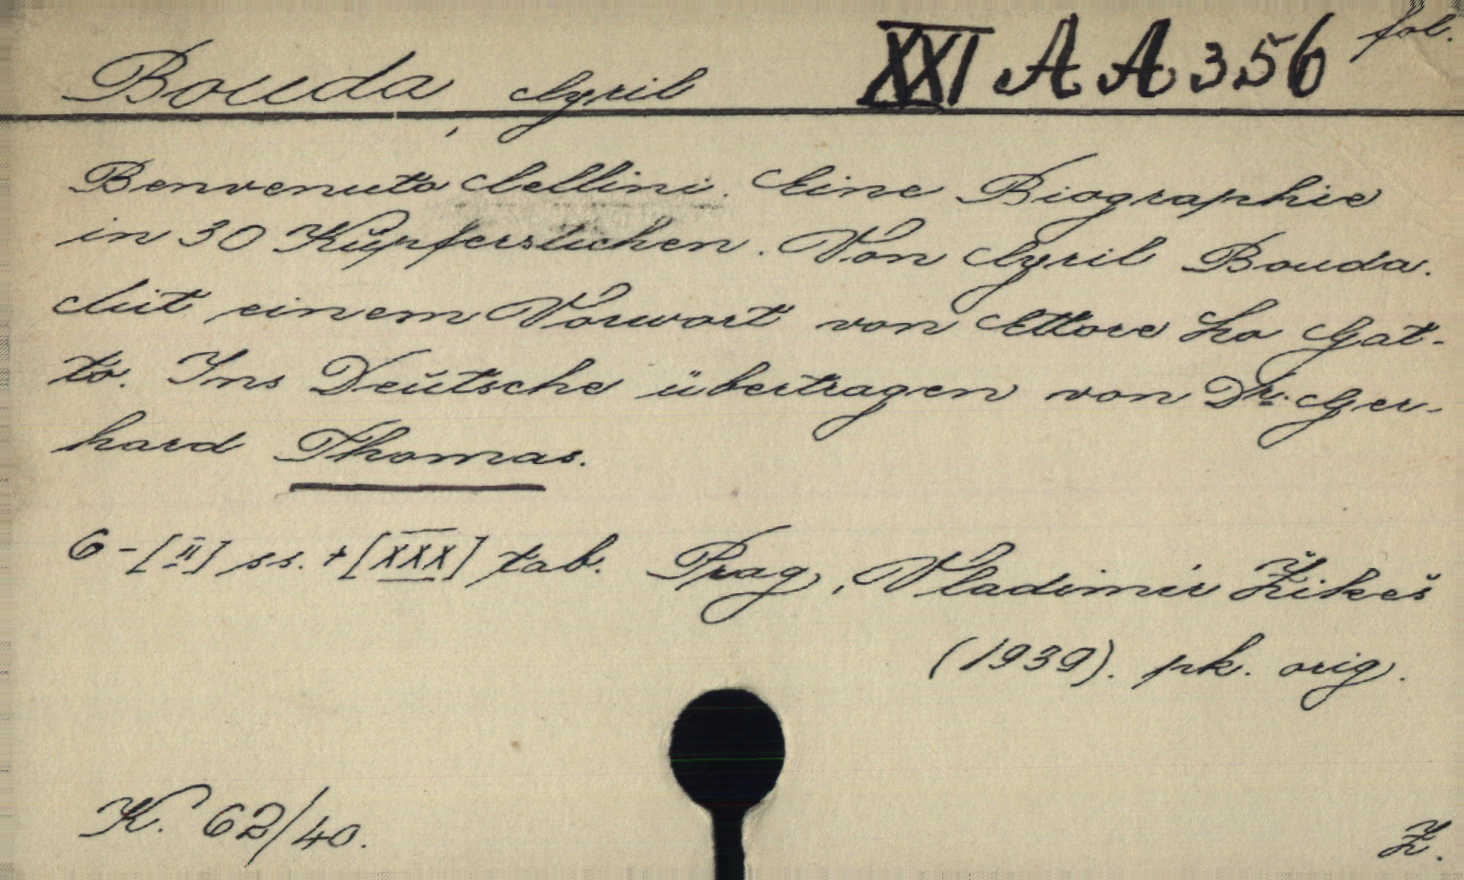 Bouda, Cyril XXI A A 356 fol.
Benvenuto Cellini. Eine Biographie
in 30 Kupferstichen. Von Cyril Bouda.
Mit einem Vorwort von Ettore Lo Gat-
to. Ins Deutsche übertragen von Dr. Ger-
hard Thomas.
6-[II] ss. + [XXX] tab. Prag, Vladimír Žikeš
(1939). pk. orig.
K. 62/40.
Ž.